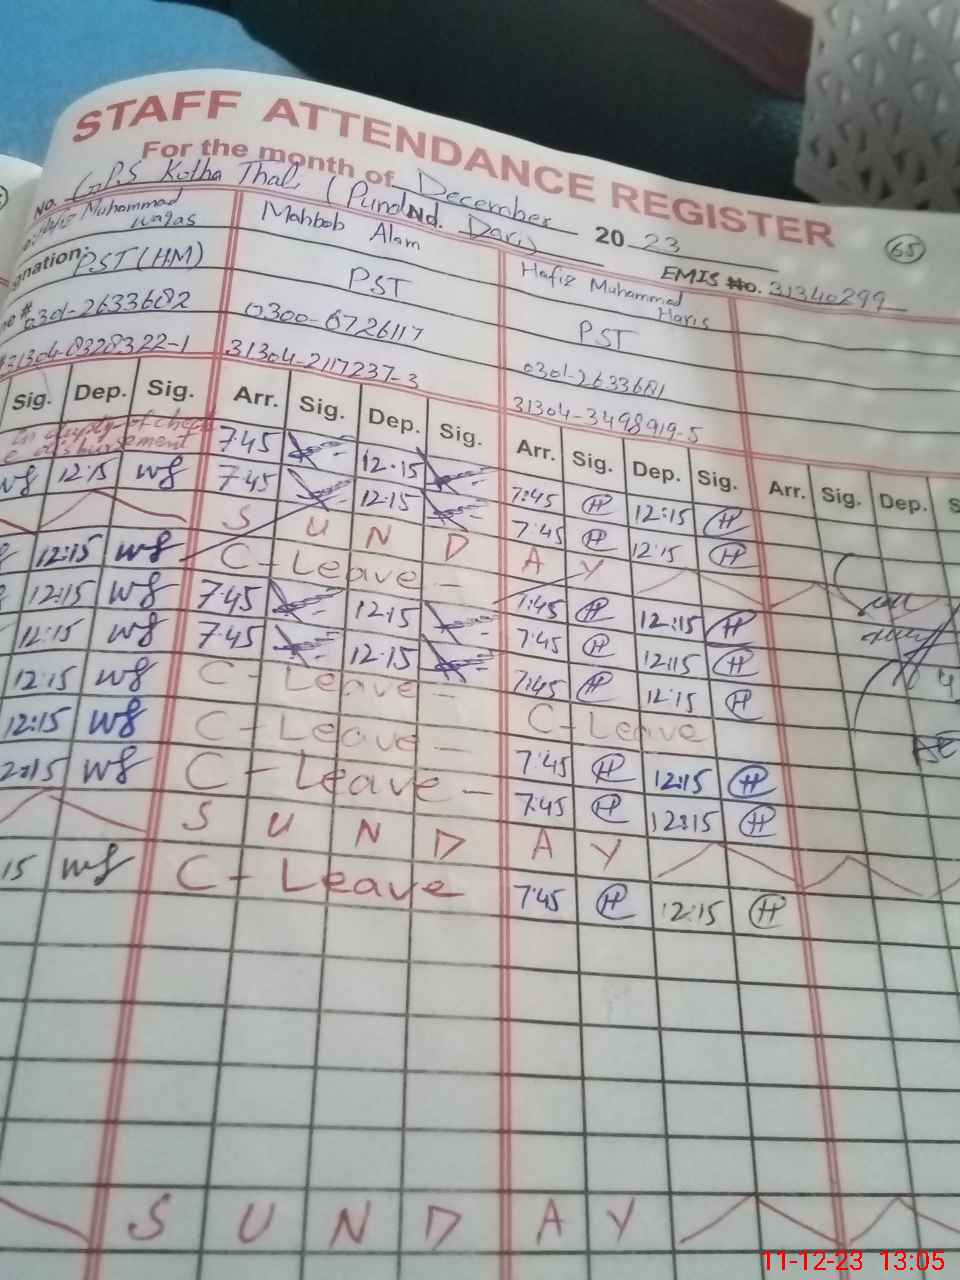 STAFF ATTENDANCE REGISTER
For the month of December 2023
65
No. G.P.S Kotha Thal (Pund Nd. Dari) EMIS No. 31340299
Muhammad Waqas Mahbob Alam Hafiz Muhammad Haris
PST (HM) PST PST
0301-2633682 0300-6726117 0301-2633681
31304-8328322-1 31304-2117237-3 31304-3498919-5
Sig. Dep. Sig. Arr. Sig. Dep. Sig. Arr. Sig. Dep. Sig. Arr. Sig. Dep. S
disbursement 7:45 12:15 7:45 H 12:15 H
12:15 7:45 12:15 7:45 H 12:15 H
S U N D A Y
12:15 C-Leave- 7:45 H 12:15 H
12:15 7:45 12:15 7:45 H 12:15 H
12:15 7:45 12:15 7:45 H 12:15 H
12:15 C-Leave- C-Leave
12:15 C-Leave- 7:45 H 12:15 H
2:15 C-Leave- 7:45 H 12:15 H
S U N D A Y
15 C-Leave 7:45 H 12:15 H
S U N D A Y
11-12-23 13:05